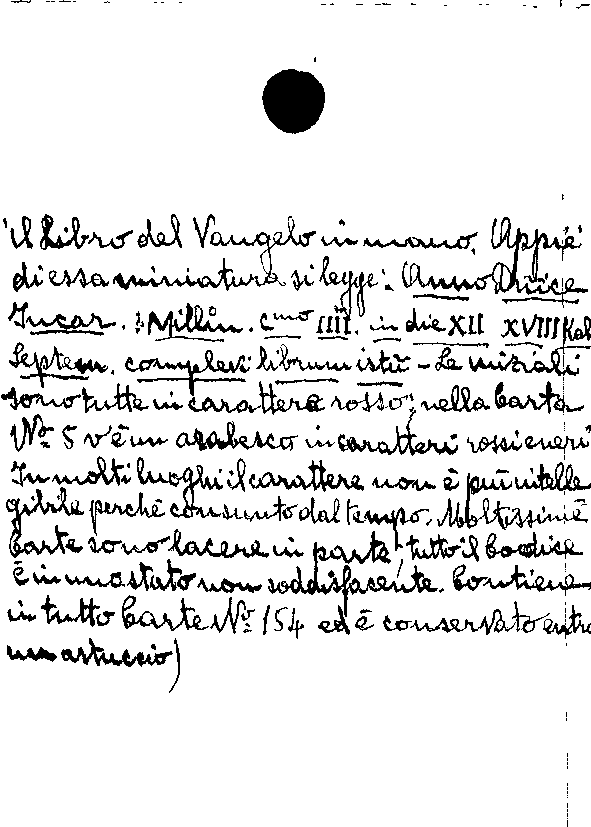 il Libro del Vangelo in mano. Appiè
di essa miniatura si legge: Anno Dnice
Incar. : Millim. cmo IIII. in die XII XVIII Kal
Septem. complevi librum istū - Le iniziali
sono tutte in carattere rosso; nella Carta
No. 5 v'è un arabesco in caratteri rossi e neri
In molti luoghi il carattere non è più intelle
gibile perchè consunto dal tempo. Moltissime
Carte sono lacere in parte; tutto il Codice
è in uno stato non soddisfacente. Contiene
in tutto Carte No. 154 ed è conservato entro
un astuccio)